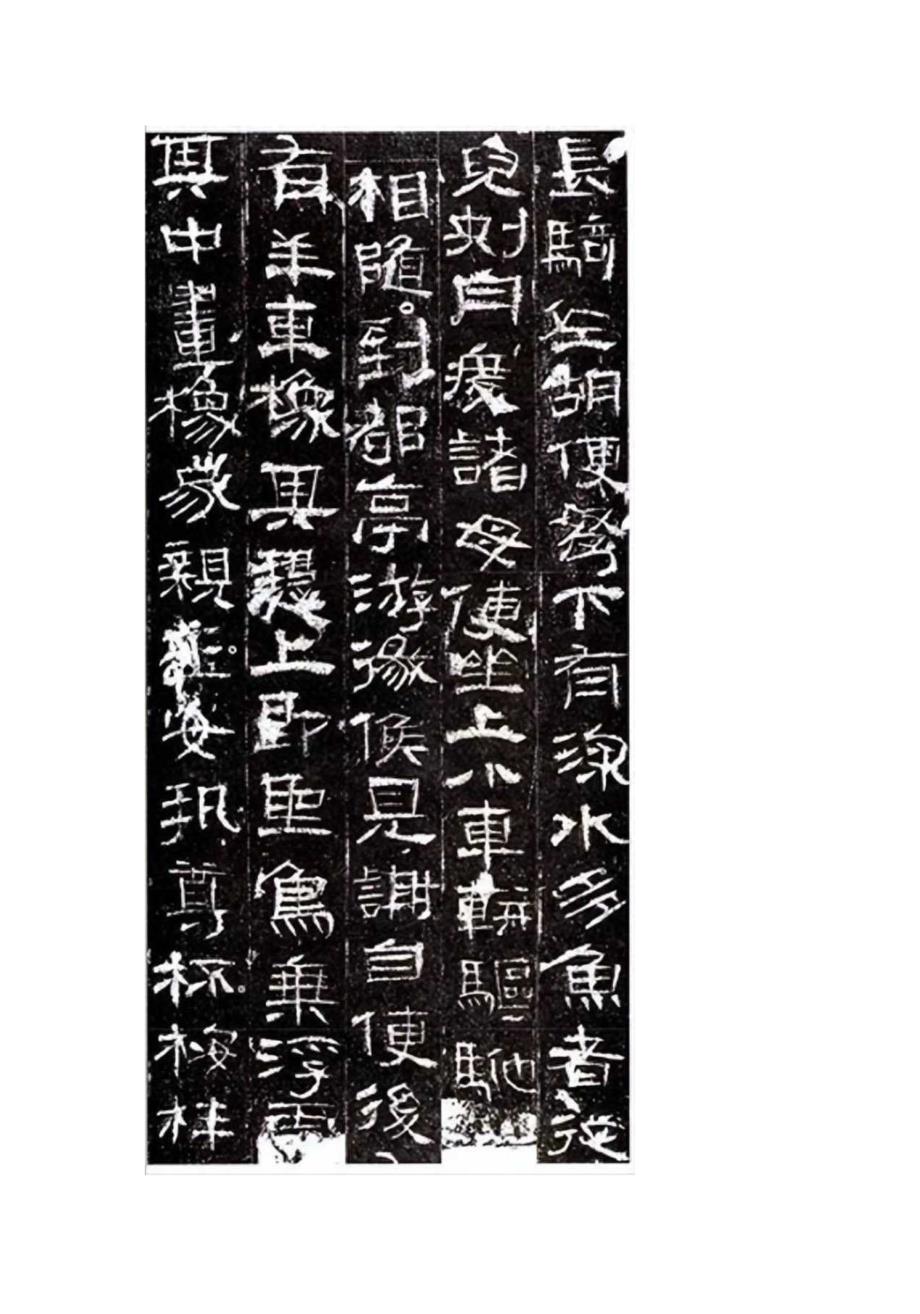 長騎佐胡使弩下有深水多魚者從
兒刺舟渡諸母使坐上小車軿驅馳
相隨到都亭游徼候見謝自便後
有羊車橡其上即聖鳥乘浮雲
其中畫橡家親玉女執尊杯桉柈